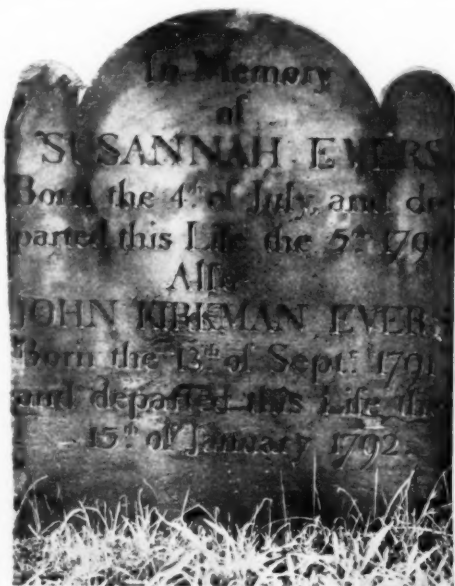 In Memory
of
SUSANNAH EVERS
Born the 4th of July, and de
parted this Life the 5th 179
Also
JOHN KIRKMAN EVERS
Born the 13th of Sept.r 1791
and departed this Life the
15th of January 1792